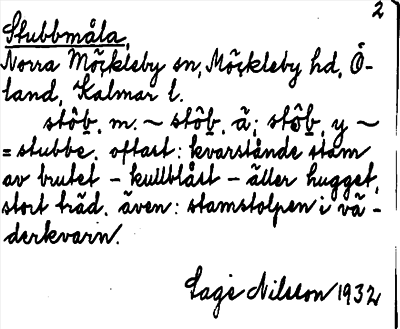 2
Stubbmåla,
Norra Möckleby sn, Möckleby hd, Ö-
land, Kalmar l.
stôb, m. ~ stôb, ä; stôb, y ~
= stubbe, oftast: kvarstånde stam
av brutet – kullblåst – äller hugget,
stort träd, även: stamstolpen i vä-
derkvarn.
Nilsson 1932